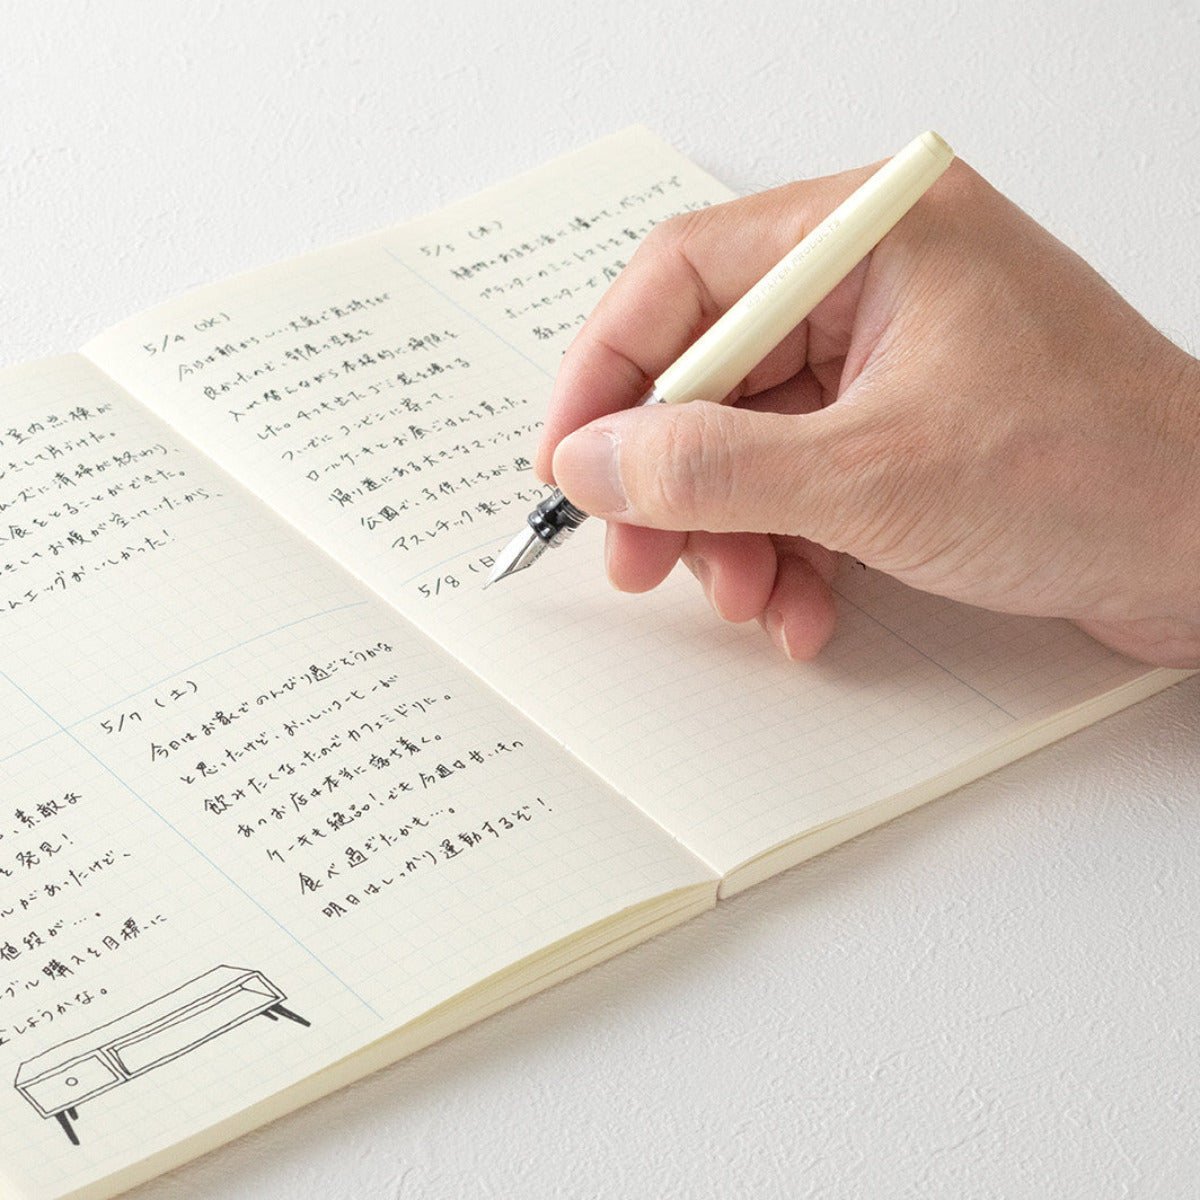 室内点検が
して片づけた。
ズに清掃が終わり、
食をとることができた。
してお腹が空いていたから、
ムエッグがおいしかった!
、素敵な
を発見!
ルがあったけど、
値段が…。
ブル購入を目標に
しようかな。
5/7 (土)
今日はお家でのんびり過ごそうかな
と思ったけど、おいしいコーヒーが
飲みたくなったのでカフェミドリに。
あのお店は本当に落ち着く。
ケーキも絶品!でも今週は甘いもの
食べ過ぎたかも…。
明日はしっかり運動するぞ!
5/4 (水)
今日は朝からいい天気で気持ちが
良かったので、部屋の空気を
入れ替えながら本格的に掃除を
した。4つも出たゴミ袋を捨てる
ついでにコンビニに寄って、
ロールケーキとお昼ごはんを買った。
帰り道にある大きなマンション
公園で、子供たちが遊
アスレチック楽しそう
5/5 (木)
植物のある生活に憧れて、ベランダで
プランターのミニトマトを
ホームセンターで店
教わっ
5/8 (日
MD PAPER PRODUCTS